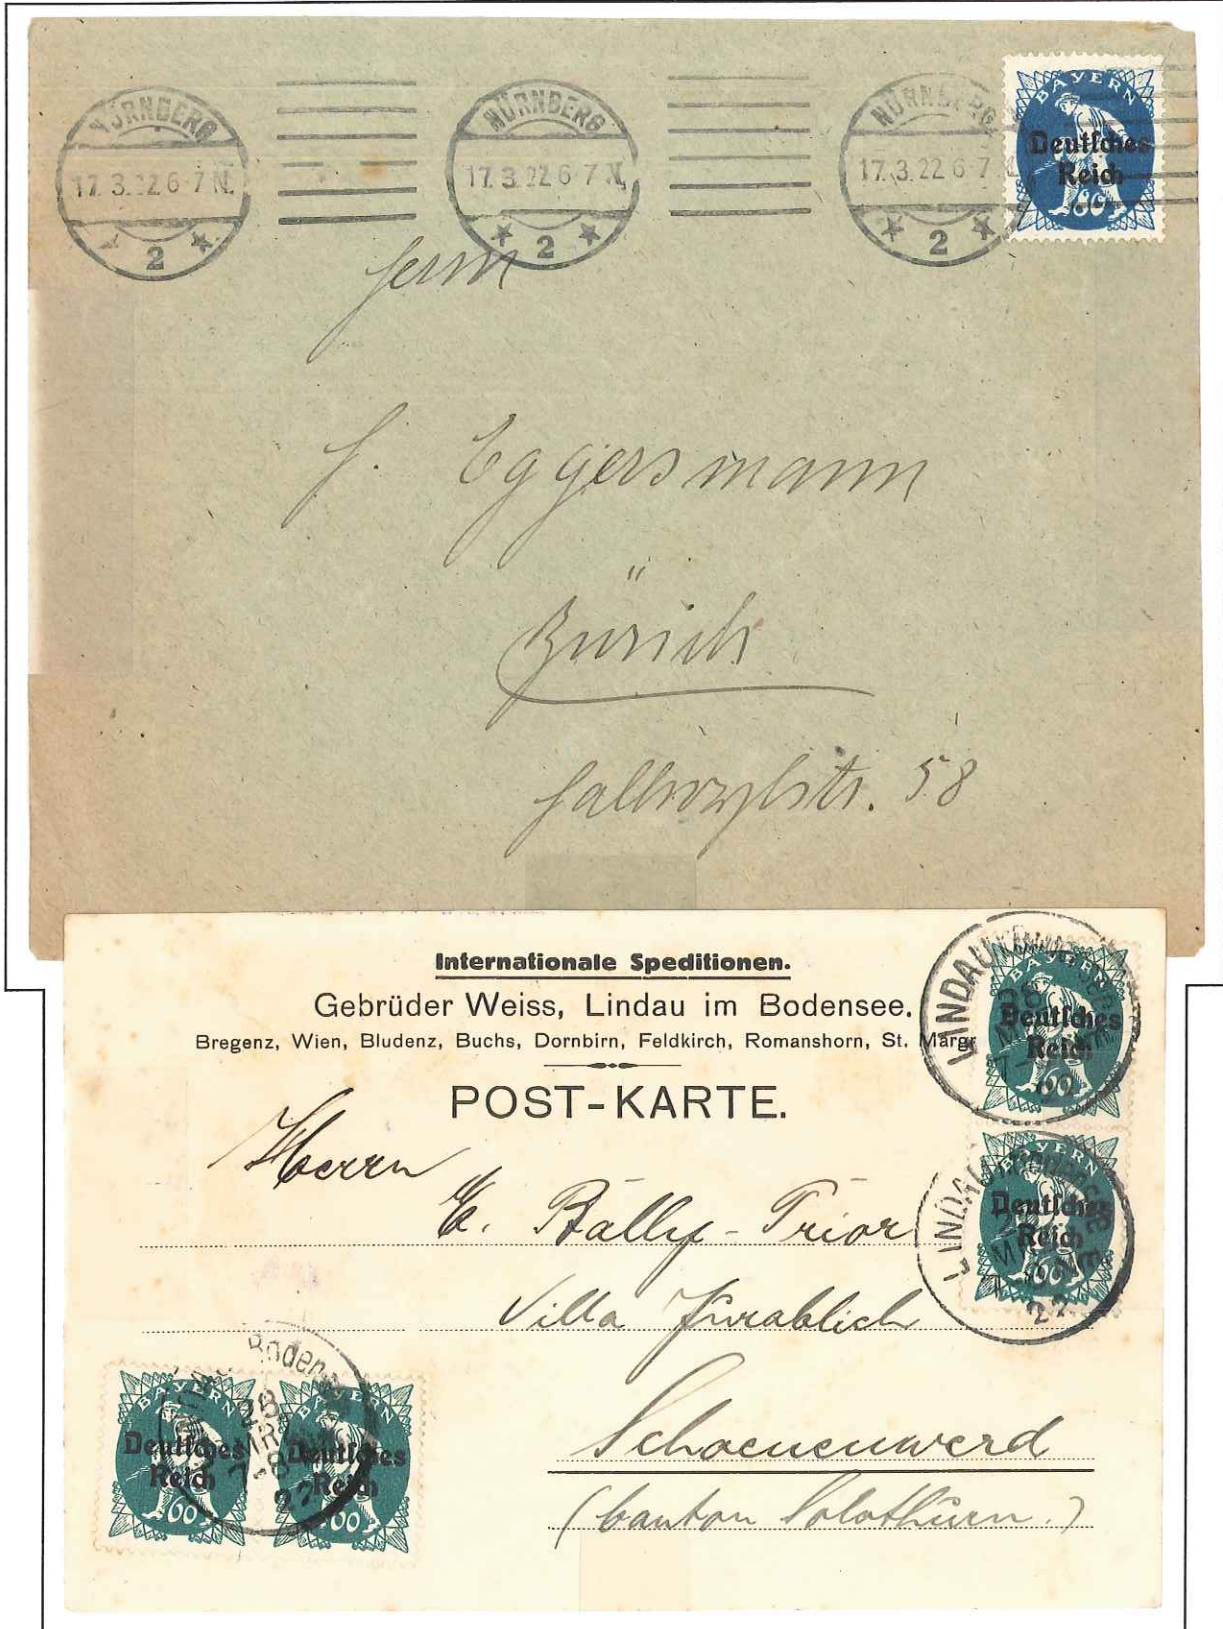 NÜRNBERG
17.3.22 6-7 N.
* 2 *
NÜRNBERG
17.3.22 6-7 N.
* 2 *
NÜRNBERG
17.3.22 6-7
* 2 *
BAYERN
Deutsches
Reich
80
Herrn
H. Eggersmann
Zürich
Hallwylstr. 58
Internationale Speditionen.
Gebrüder Weiss, Lindau im Bodensee.
Bregenz, Wien, Bludenz, Buchs, Dornbirn, Feldkirch, Romanshorn, St. Margr
POST-KARTE.
LINDAU
BAYERN
Deutsches
Reich
60
LINDAU
BAYERN
Deutsches
Reich
60
22
Herrn
E. Bally-Prior
Villa Jurablick
Schoenenwerd
(Canton Solothurn.)
Boden
28
MRZ
7-8
22
BAYERN
Deutsches
Reich
60
BAYERN
Deutsches
Reich
60